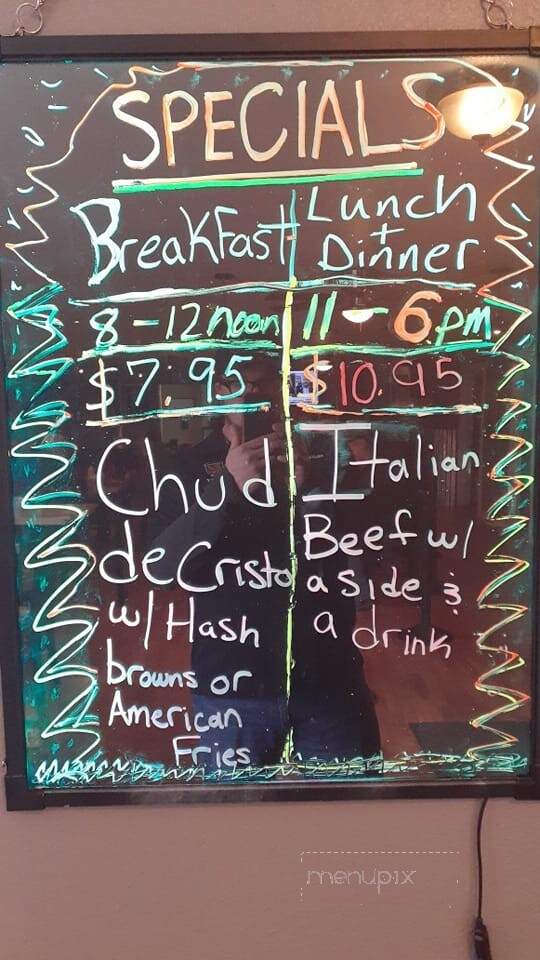 SPECIALS
Breakfast
8 - 12 noon
$7.95
Chud
de Cristo
w/ Hash
browns or
American
Fries
Lunch
+
Dinner
11 - 6pm
$10.95
Italian
Beef w/
a side &
a drink
menupix